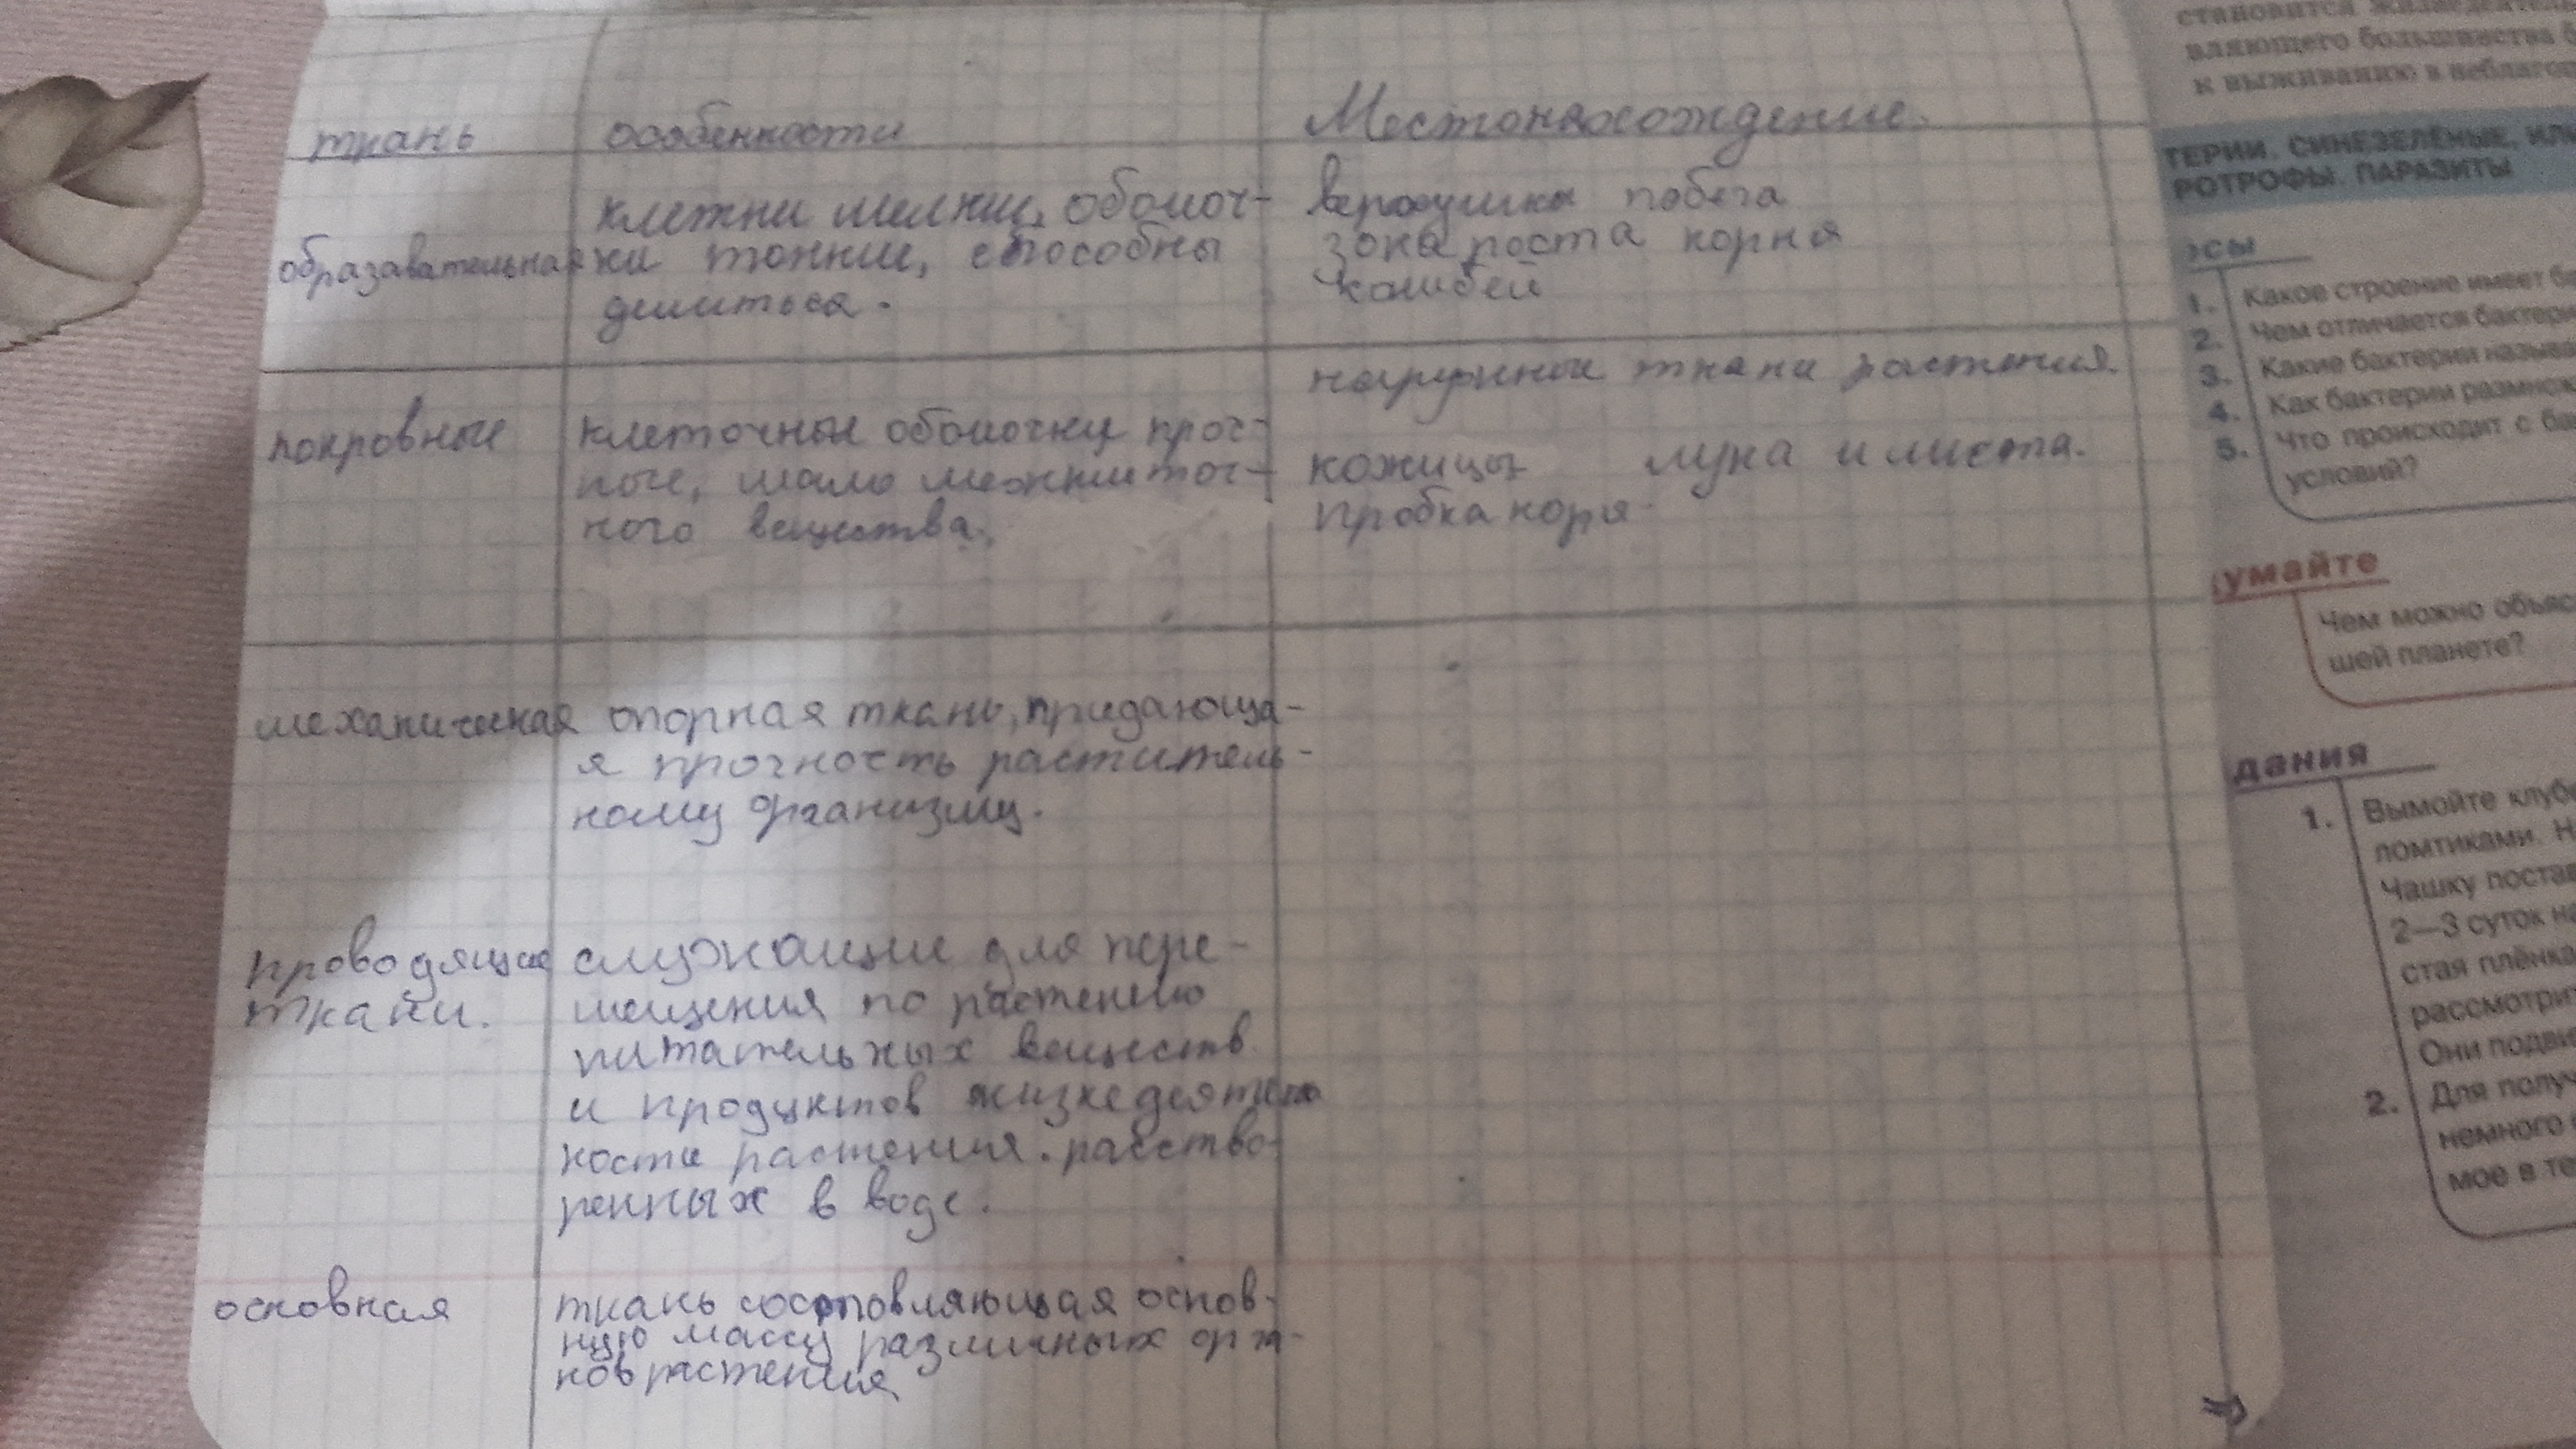 ткань особенности Местонахождение.
клетки мелкие, оболоч- верхушка побега
образавательная ки тонкие, способны зона роста корня
делиться.
покровные клеточные оболочки проч- наружные ткани растения.
ные, мало межклеточ- кожицы лука и листа.
ного вещества. пробка
механическая опорная ткань, придающа-
я прочность раститель-
ному организму.
проводящие служащие для пере-
ткани. мещения по растению
питательных веществ
и продуктов жизнедеятель
ности растения. расство-
ренных в воде.
основная ткань состовляющая основ-
ную массу различных орга-
нов растения
становится
вляющего большинства
к выживанию в неблагоп
ТЕРИИ. СИНЕЗЕЛЁНЫЕ,
РОТРОФЫ. ПАРАЗИТЫ
осы
1. Какое строение имеет
2. Чем отличается бактери
3. Какие бактерии называ
4. Как бактерии размнож
5. Что происходит с ба
условий?
умайте
Чем можно объяс
шей планете?
дания
1. Вымойте клубе
ломтиками. Н
Чашку постав
2—3 суток на
стая плёнка
рассмотрит
Они подви
2. Для получ
немного
мое в те